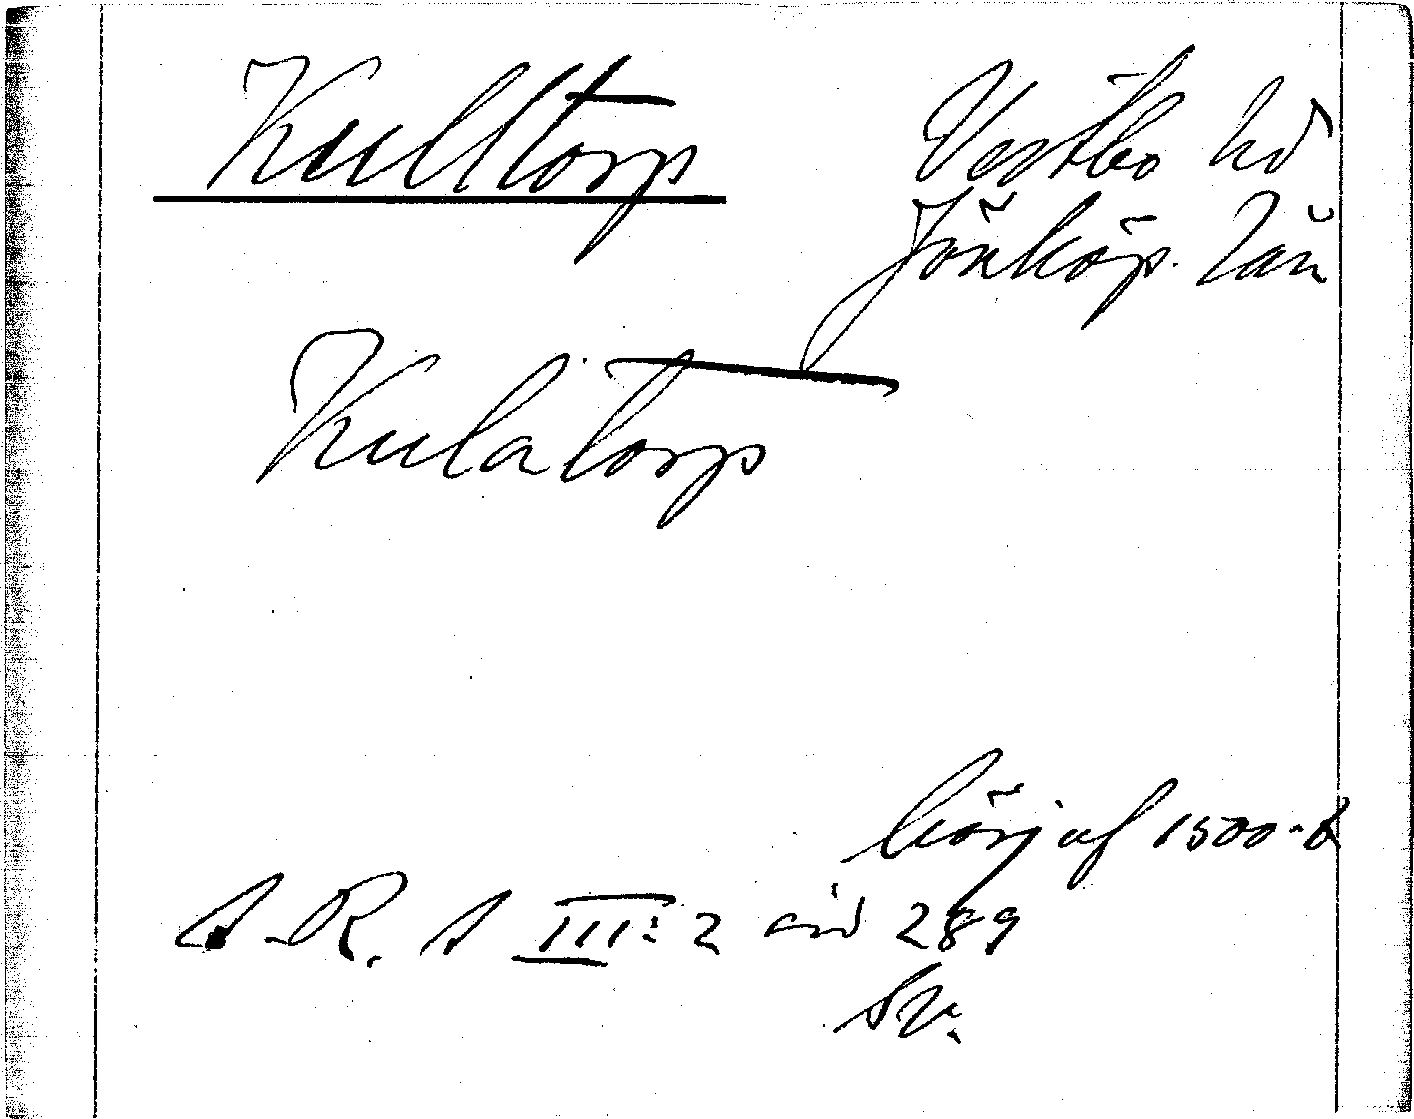 Kulltorp
Vestbo hd
Jönköp. län
Kulatorp
börj af 1500-t
A III: 2 avd 289
Sv.